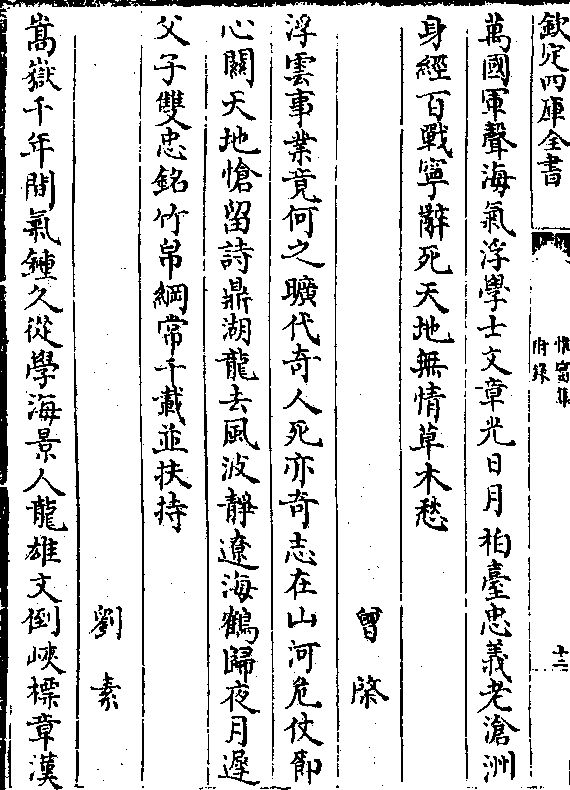 欽定四庫全書
附錄
十三
萬國軍聲海氣浮學士文章光日月柏臺忠義老滄洲
身經百戰寧辭死天地無情草木愁
曾棨
浮雲事業竟何之曠代奇人死亦奇志在山河危仗節
心關天地愴留詩鼎湖龍去風波靜遼海鶴歸夜月遲
父子雙忠銘竹帛綱常千載並扶持
劉素
嵩嶽千年間氣鍾久從學海景人龍雄文倒峽標章漢